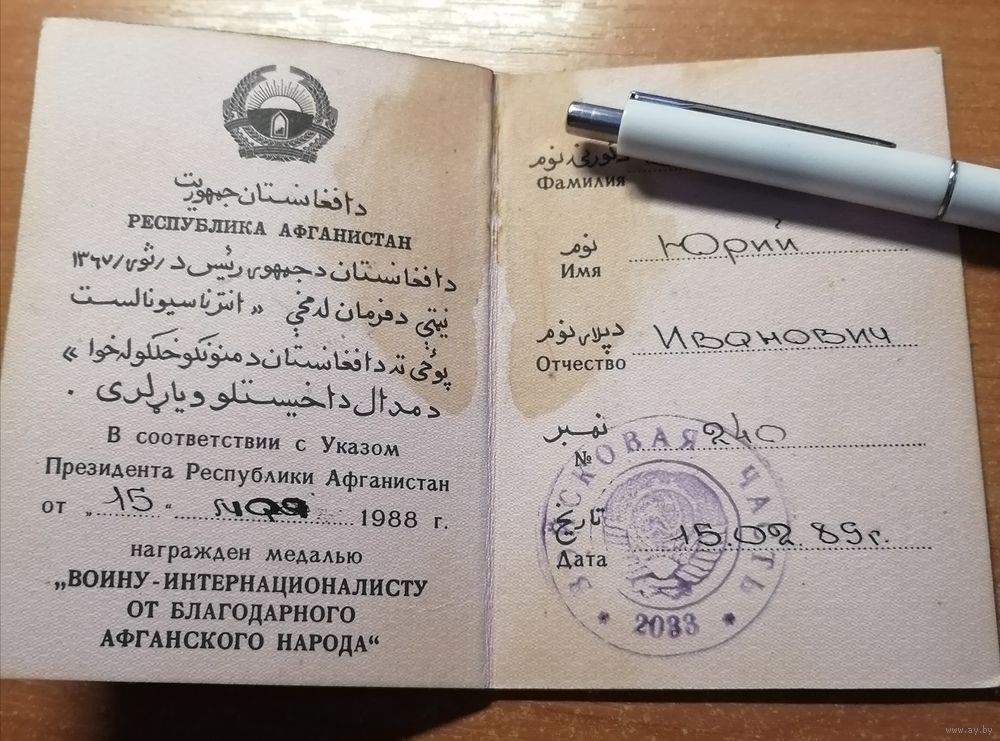 د افغانستان جمهوریت
РЕСПУБЛИКА АФГАНИСТАН
د افغانستان د جمهوری رئیس د / ثور / ۱۳۶۷
نیټې د فرمان له مخې « انترناسیونالست
پوځی ته د افغانستان د منونکو خلکو له خوا »
د مدال د اخیستلو ویاړ لری .
В соответствии с Указом
Президента Республики Афганистан
от „15“ мая 1988 г.
награжден медалью
„ВОИНУ-ИНТЕРНАЦИОНАЛИСТУ
ОТ БЛАГОДАРНОГО
АФГАНСКОГО НАРОДА“
نوم
Фамилия
نوم Юрий
Имя
د پلار نوم Иванович
Отчество
نمبر 240
№
تاریخ 15.02.89г.
Дата
ВОЙСКОВАЯ ЧАСТЬ
* 2033 *
www.ay.by